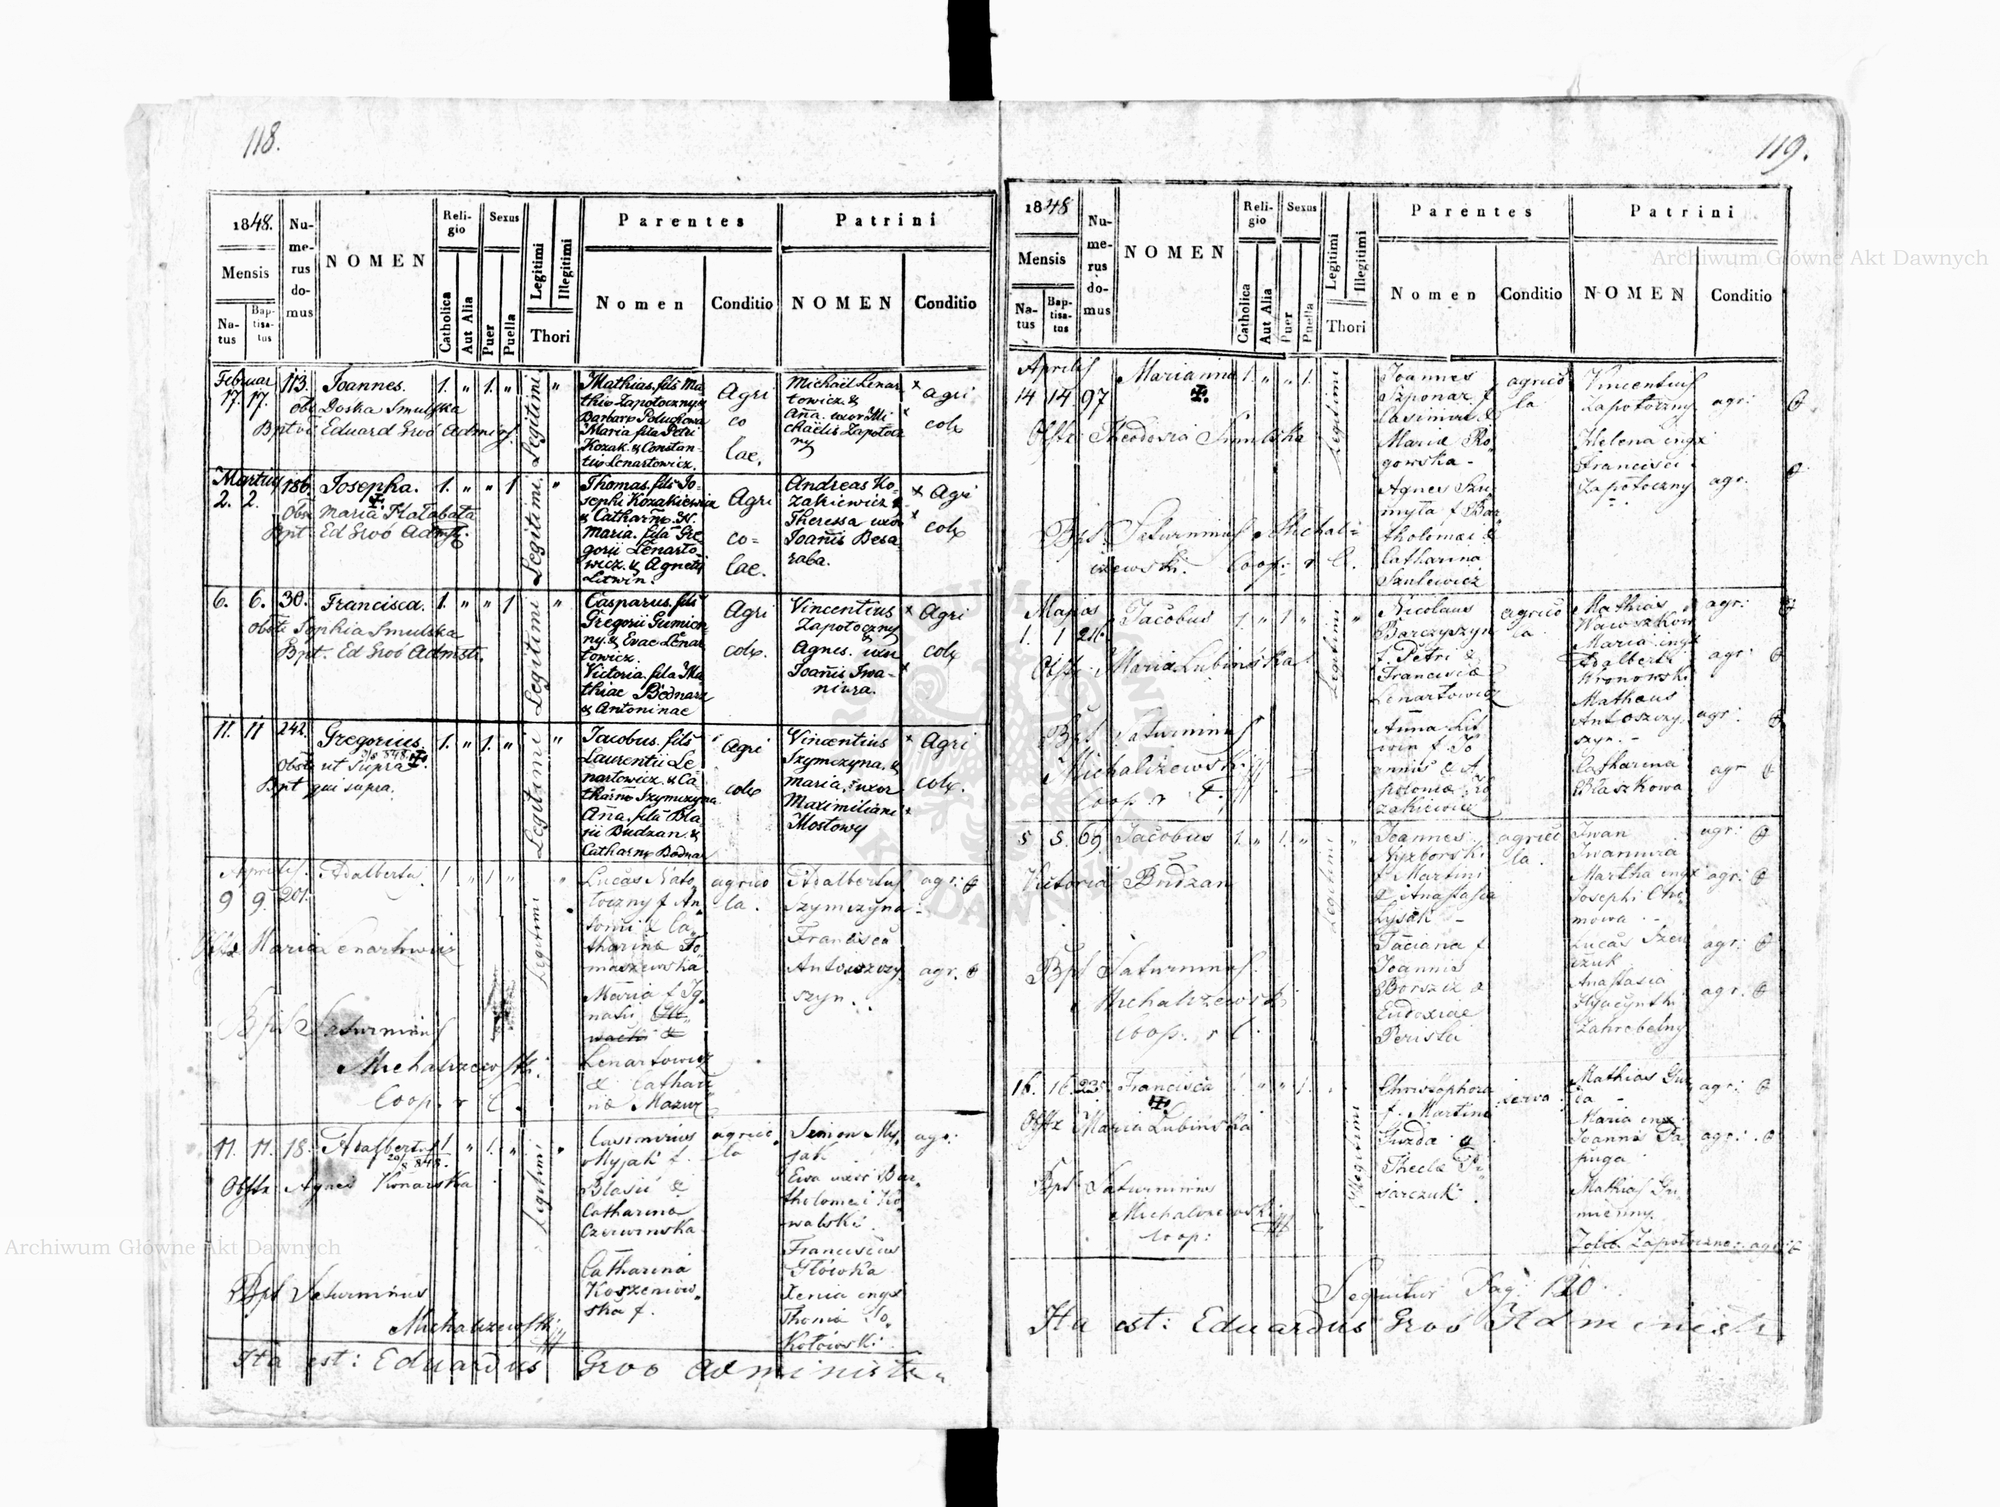 118.
1848.
Mensis
Na-
tus
Bap-
tisa-
tus
Nu-
me-
rus
do-
mus
NOMEN
Reli-
gio
Catholica
Aut Alia
Sexus
Puer
Puella
Legitimi
Illegitimi
Thori
Parentes
Nomen
Conditio
Patrini
NOMEN
Conditio
Februar
17. 17. 113. Joannes. 1. " 1. " Legitimi "
Doska Smulska
Eduard Groó Admstr
Mathias. fils Ma
thiæ Zapotoczny &
Barbaræ Poluchowa
Maria fila Petri
Kozak. & Constan-
tiæ Lenartowicz.
Agri
co
lae.
Michael Lenar
towicz. &
Ana. uxor Mi
chaelis Zapotocz
ny
Agri
colæ
Martius
2. 2. 186. Josepha. 1. " " 1 Legitimi. "
Obst Maria Kalabata
Bpt. Ed Groó Admstr.
Thomas. fils Jo-
sephi Kozakiewicz
& Catharinæ K.
Maria. fila Gre
gorii Lenarto-
wicz. & Agnetis
Litwin.
Agri
co=
lae.
Andreas Ko-
zakiewicz &
Theressa uxor
Joanis Besa-
raba.
Agri
colæ
6. 6. 30. Francisca. 1. " " 1 Legitimi "
Obst Sophia Smulska
Bpt. Ed Groó Admstr.
Casparus. fils
Gregorii Gumien-
ny. & Evae Lenar
towicz.
Victoria. fila Ma
thiae Bednarz
& Antoninae
Agri
colæ.
Vincentius
Zapotoczny
&
Agnes. uxor
Joanis Iwa-
niura.
Agri
colæ
11. 11 242. Gregorius. 1. " 1. " Legitimi "
Obst ut supra
Bpt qui supra.
Jacobus. fils
Laurentii Le
nartowicz. & Ca
tharinæ Szymczyna
Ana. fila Bla
sii Budzan. &
Catharinæ Bodnar
Agri
colæ
Vincentius
Szymczyna. &
Maria. uxor
Maximiliani
Mostowy
Agri
colæ.
Aprilis.
9 9. 201. Adalbertus 1 " 1 " Legitimi "
Obstx Maria Lenartowicz
Bpt Saturninus
Michalczewski.
Coop. r C.
Lucas Zato
toczny f. An
tonii & Ca
tharina To
maszewska
Maria f. Ig
natii
Lenartowicz
& Cathari
næ Mazur
agrico
la.
Adalbertus
Szymczyna -
Francisca
Antoszczy
szyn.
agr:
agr.
11. 11. 18. Adalbertus 1 " 1. " Legitimi "
Obstx Agnes Konarska
Bpt Saturninus
Michalczewski
Casimirus
Myjak f.
Blasii &
Catharina
Czerwinska
Catharina
Koszeniow
ska f.
agrico
la
Simon My
jak
Ewa uxor Bar
tholomei Ko
walski.
Franciscus
Główka
Xenia cngx
Thoma So
kołowski
agr.
Ita est: Eduardus Groó Administr
119.
1848
Mensis
Na-
tus
Bap-
tisa-
tus
Nu-
me-
rus
do-
mus
NOMEN
Reli-
gio
Catholica
Aut Alia
Sexus
Puer
Puella
Legitimi
Illegitimi
Thori
Parentes
Nomen
Conditio
Patrini
NOMEN
Conditio
Aprilis
14 14 97 Marianna 1. " " 1. Legitimi
Obstx Theodosia Smulska
Bpt Saturninus Michal-
czewski. Coop. r C.
Joannes
Szponar f.
Casimiri &
Mariæ Ro
gowska -
Agnes Szu
myta f Bar
tholomæi &
Catharina
Saulewicz
agrico
la
Vincentius
Zapotoczny
Helena cngx
Francisci
Zapotoczny
agr:
agr.
Majus
1. 1 216 Jacobus 1. " 1 " Legitimi "
Obstx Maria Lubinska
Bpt Saturninus
Michalczewski
Coop. r C.
Nicolaus
Barczyszyn
f. Petri &
Francisca
Lenartowicz
Anna Lit
win f. Jo
annis & A
polonia Ko
zakiewicz
agrico
la
Mathias
Wawszkow
Maria cngx
Adalberti
Wronowski
Mathaus
Antoszczy
szyn. -
Catharina
Błaszkowa
agr:
agr:
agr:
agr
5 5. 69. Jacobus 1. " 1. " Legitimi "
Victoria Budzan
Bpt Saturninus
Michalczewski
Coop. r C.
Joannes
Wyzborski
f Martini
& Anastasia
Lysak -
Taciana f.
Joannis
Borszcz &
Eudoxiae
Perista
agrico
la.
Iwan
Iwaniura
Martha cngx
Josephi Chro
mowa. -
Lucas Szew
czuk
Anastasia
Hyacynthi
Zahrebelny
agr:
agr:
agr:
agr:
16. 16. 235 Francisca 1. " " 1. Illegitimi
Obstx Maria Lubinska
Bpt Saturninus
Michalczewski
Coop:
Chrisophora
f. Martini
Guzda &
Thecla Pi
sarczuk.
serva
Mathias Guz
da -
Maria cngx
Joannis Pa
puga
Mathias Gu
mienny.
Zofia Zapotoczna agr:
agr:
agr:
Sequitur Pag: 120.
Ita est: Eduardus Groó Administr
Archiwum Główne Akt Dawnych
Archiwum Główne Akt Dawnych